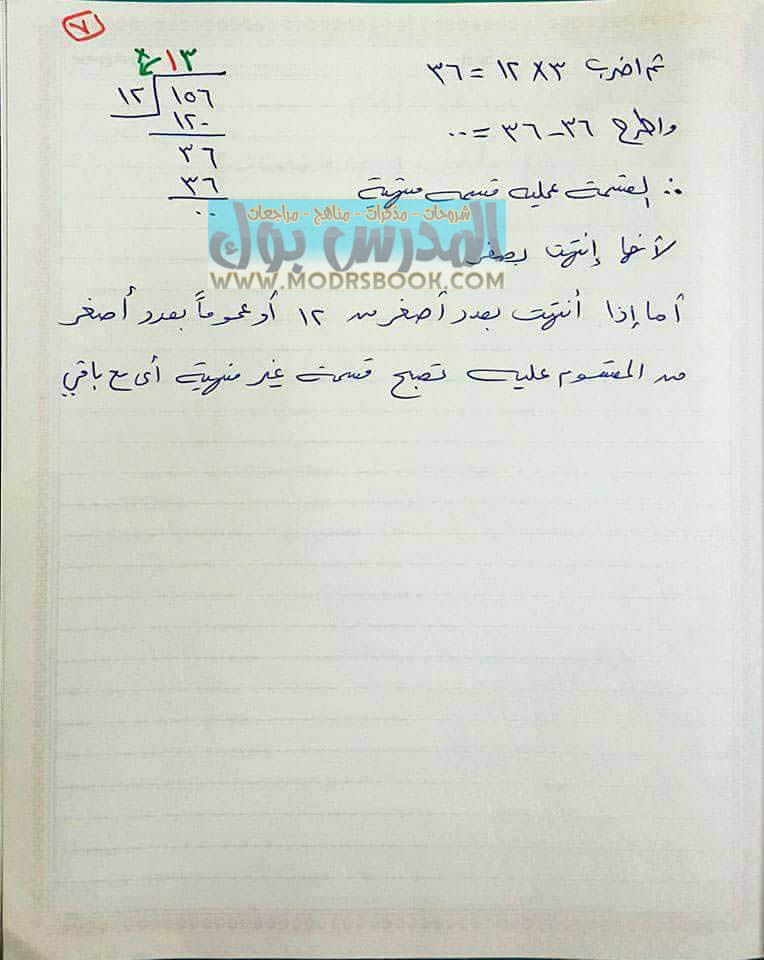 ٧
ثم اضرب ٣ × ١٢ = ٣٦
واطرح ٣٦ - ٣٦ = ٠٠
∴ القسمة عملية قسمة منتهية
لأنها إنتهت بصفر
أما إذا أنتهت بعدد أصغر من ١٢ أو عموماً بعدد أصغر
من المقسوم عليه تصبح قسمة غير منتهية أى مع باقي
× ١٣
١٢ ١٥٦
١٢٠
٣٦
٣٦
٠٠
شروحات - مذكرات - مناهج - مراجعات
المدرس بوك
WWW.MODRSBOOK.COM